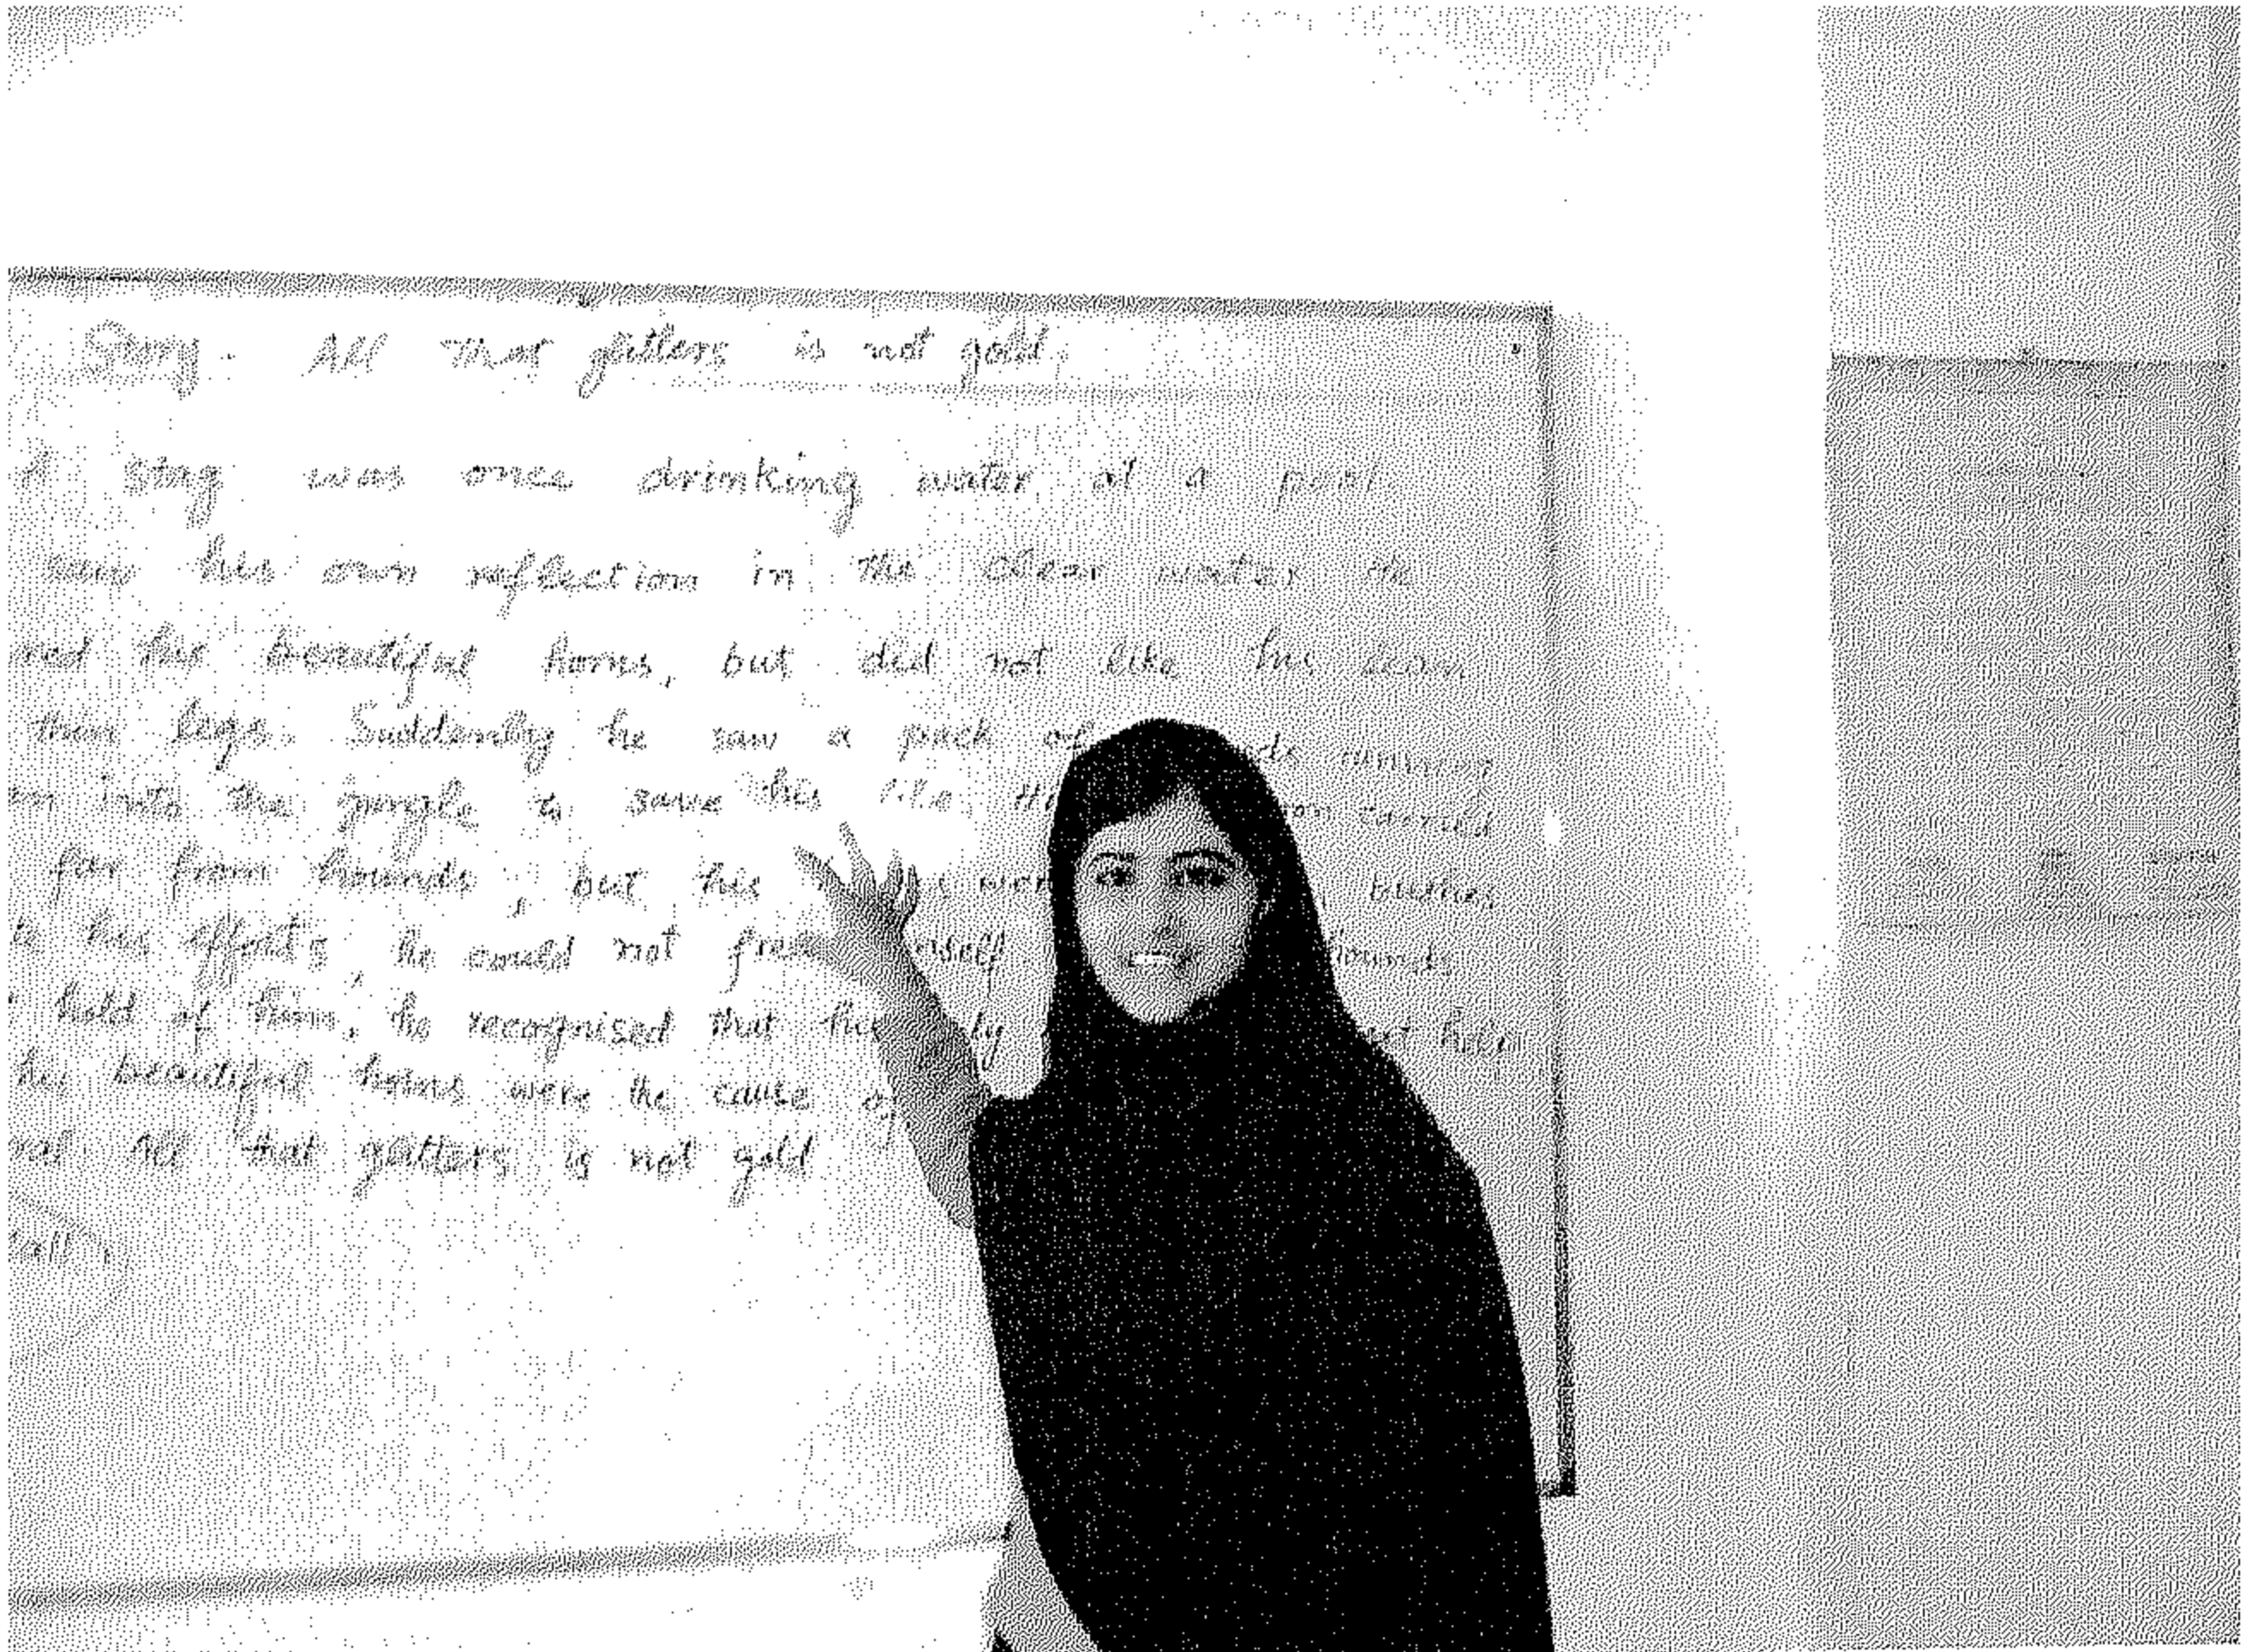 Story. All that glitters is not gold.
A stag was once drinking water at a pool.
saw his own reflection in the clear water He
red his beautiful horns, but did not like his
thin legs. Suddenly he saw a pack of nds running
into the jungle to save his life. on carried
far from hounds, but his bushes
his efforts, he could not free mself hounds
hold of him, he recognised that his ly help
his beautiful horns were the cause of
ral All that glitters is not gold